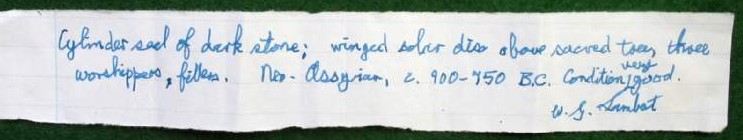 Cylinder seal of dark stone; winged solar disc above sacred tree, three
worshippers, fillers. Neo-Assyrian, c. 900-750 B.C. Condition very good.
W. G. Lambert